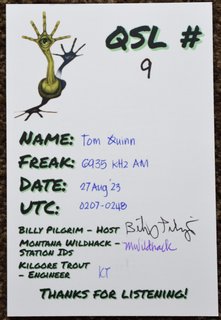 QSL #
9
Name: Tom Quinn
Freak: 6935 kHz AM
Date: 27 Aug '23
UTC: 0207-0248
Billy Pilgrim – Host Billy Pilgrim
Montana Wildhack – MWildhack
Station IDs
Kilgore Trout
– Engineer KT
Thanks for listening!